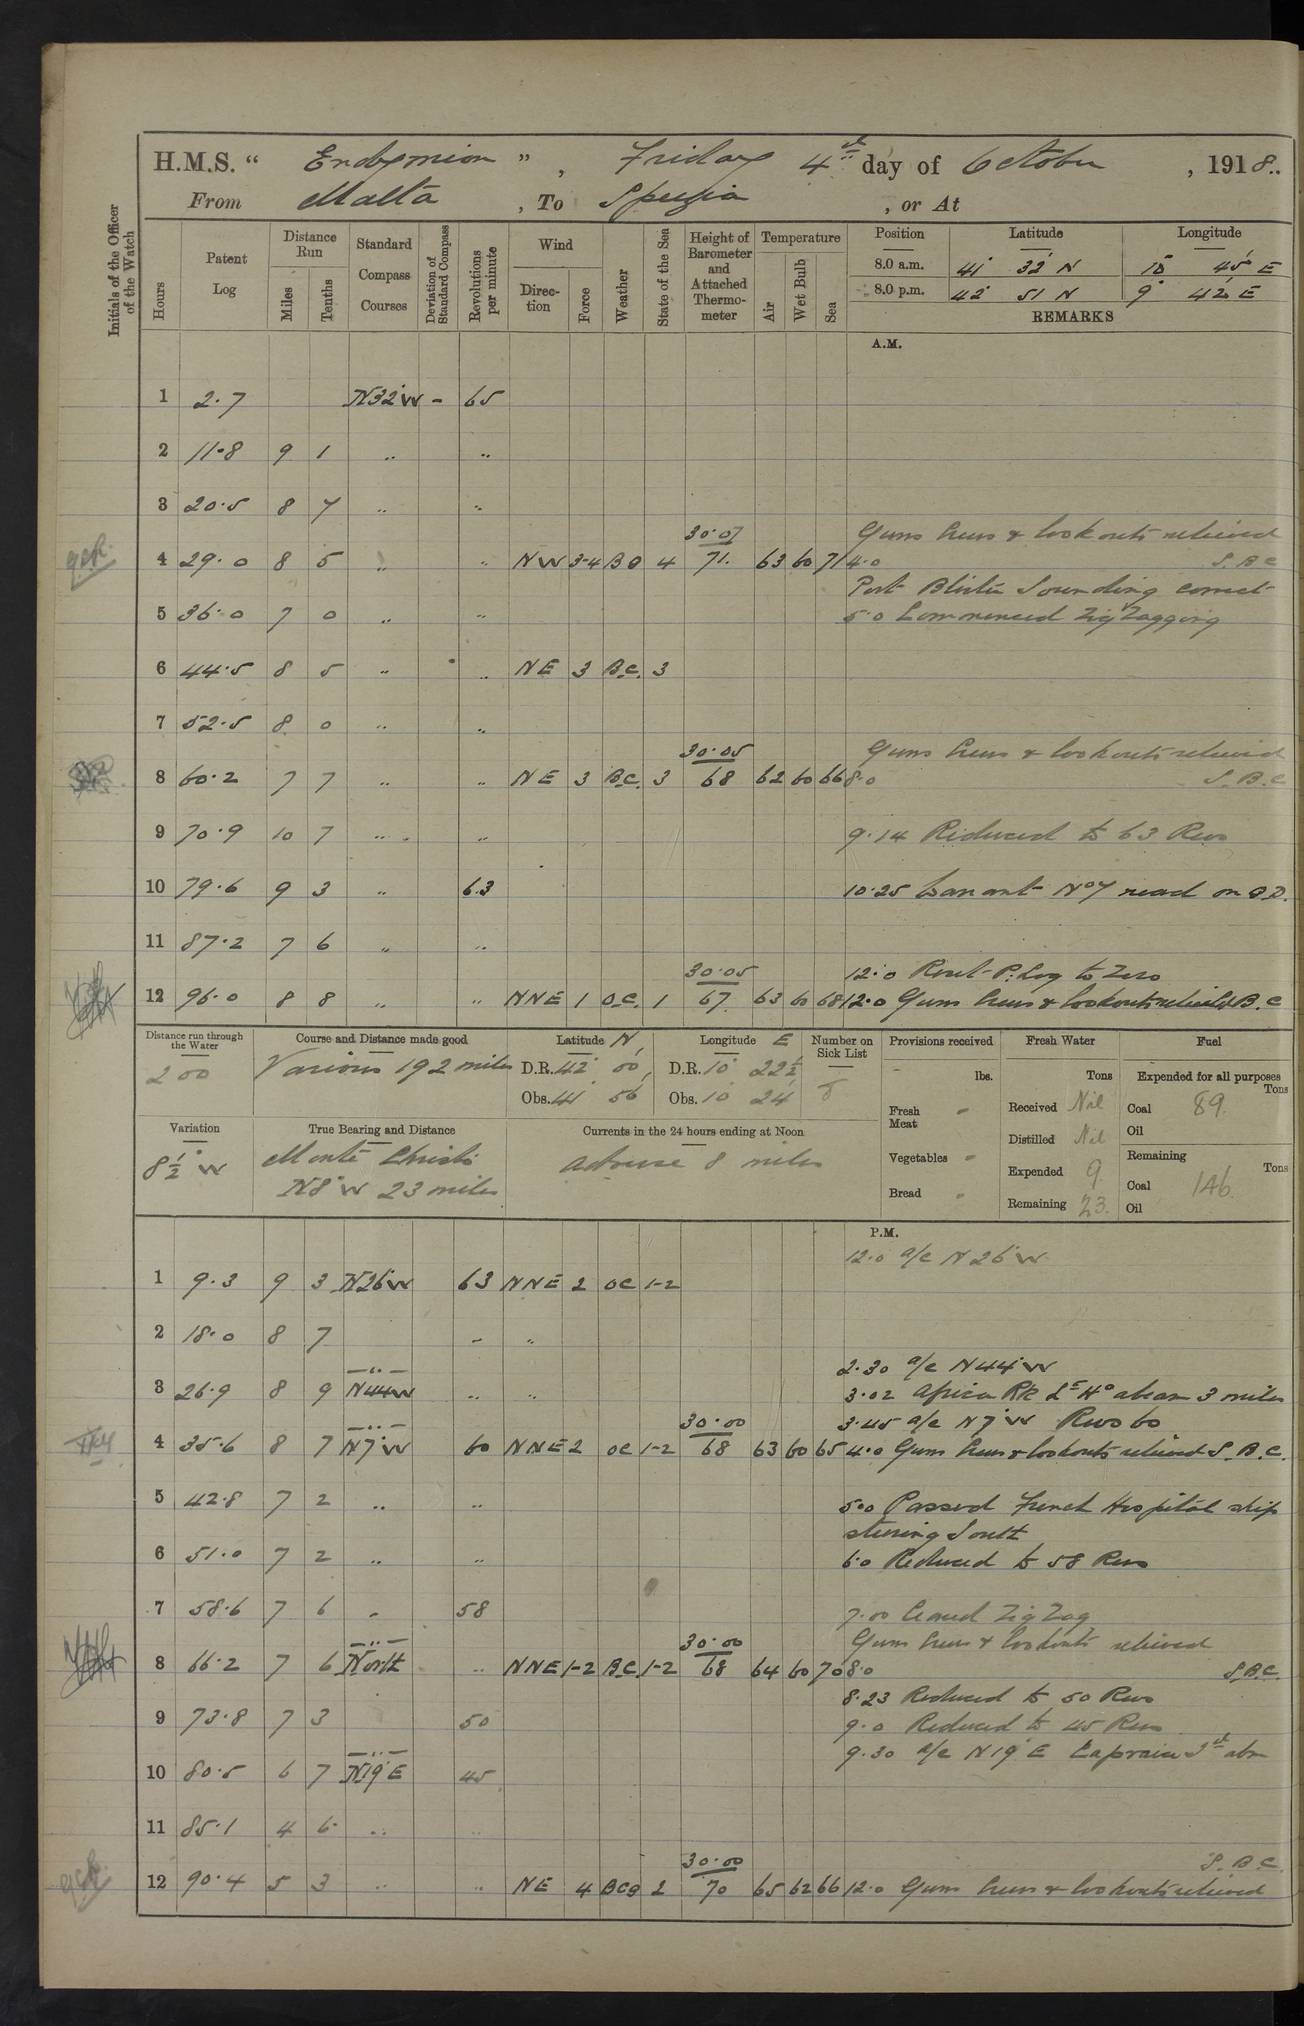 H.M.S. “ Endymion ” , Friday 4th day of October , 1918..
From Malta , To Spezia , or At
Initials of the Officer of the Watch
Hours Patent Log Distance Run Miles Tenths Standard Compass Courses Deviation of Standard Compass Revolutions per minute Wind Direction Force Weather State of the Sea Height of Barometer and Attached Thermometer Temperature Air Wet Bulb Sea Position Latitude Longitude
8.0 a.m. 41° 32' N 10° 45' E
8.0 p.m. 42° 51 N 9° 42' E
REMARKS
A.M.
1 2.7 N32°W - 65
2 11.8 9 1 " "
3 20.5 8 7 " "
30.07 Guns Crews & lookouts relieved
4 29.0 8 5 " " NW 3-4 BC 4 71. 63 60 71 4.0 S.B.C
Port Blister Sounding correct
5 36.0 7 0 " " 5.0 Commenced Zig Zagging
6 44.5 8 5 " " NE 3 B.C. 3
7 52.5 8 0 " "
30.05 Guns Crews & lookouts relieved
8 60.2 7 7 " " NE 3 B.C. 3 68 62 60 66 8.0 S.B.C
9 70.9 10 7 " " 9.14 Reduced to 63 Revs
10 79.6 9 3 " 63 10.25 Warrant No 7 read on Q.D.
11 87.2 7 6 " "
30.05 12.0 Reset P. Log to Zero
12 96.0 8 8 " " NNE 1 O.C. 1 67. 63 60 68 12.0 Guns Crews & lookouts relieved S.B.C
Distance run through the Water Course and Distance made good Latitude N Longitude E Number on Sick List Provisions received Fresh Water Fuel
200 Various 192 miles D.R. 42° 00' D.R. 10° 22½' 8 lbs. Tons Expended for all purposes Tons
Obs. 41 56' Obs. 10 24' Fresh Meat - Received Nil Coal 89.
Variation True Bearing and Distance Currents in the 24 hours ending at Noon Distilled Nil Oil
8½° W Monte Christi adverse 8 miles Vegetables - Expended 9. Remaining Tons
N8°W 23 miles Bread - Remaining 23. Coal 146.
Oil
P.M.
12.0 a/c N26°W
1 9.3 9 3 N26°W 63 NNE 2 OC 1-2
2 18.0 8 7 " "
2.30 a/c N44°W
3 26.9 8 9 N44W " " 3.02 Africa Rk Lt Ho abeam 3 miles
30.00 3.45 a/c N7°W Revs 60
4 35.6 8 7 N7°W 60 NNE 2 OC 1-2 68 63 60 65 4.0 Guns Crews & lookouts relieved S.B.C.
5 42.8 7 2 " " 5.0 Passed French Hospital ship
steering South
6 51.0 7 2 " " 6.0 Reduced to 58 Revs
7 58.6 7 6 " 58 7.00 Ceased Zig Zag
30.00 Guns Crews & lookouts relieved
8 66.2 7 6 North " NNE 1-2 B.C. 1-2 68 64 60 70 8.0 S.B.C.
8.23 Reduced to 50 Revs
9 73.8 7 3 50 9.0 Reduced to 45 Revs
9.30 a/c N19°E Capraia
10 80.5 6 7 N19°E 45
11 85.1 4 6 " "
30.00 S.B.C.
12 90.4 5 3 " " NE 4 BCQ 2 70 65 62 66 12.0 Guns Crews & lookouts relieved